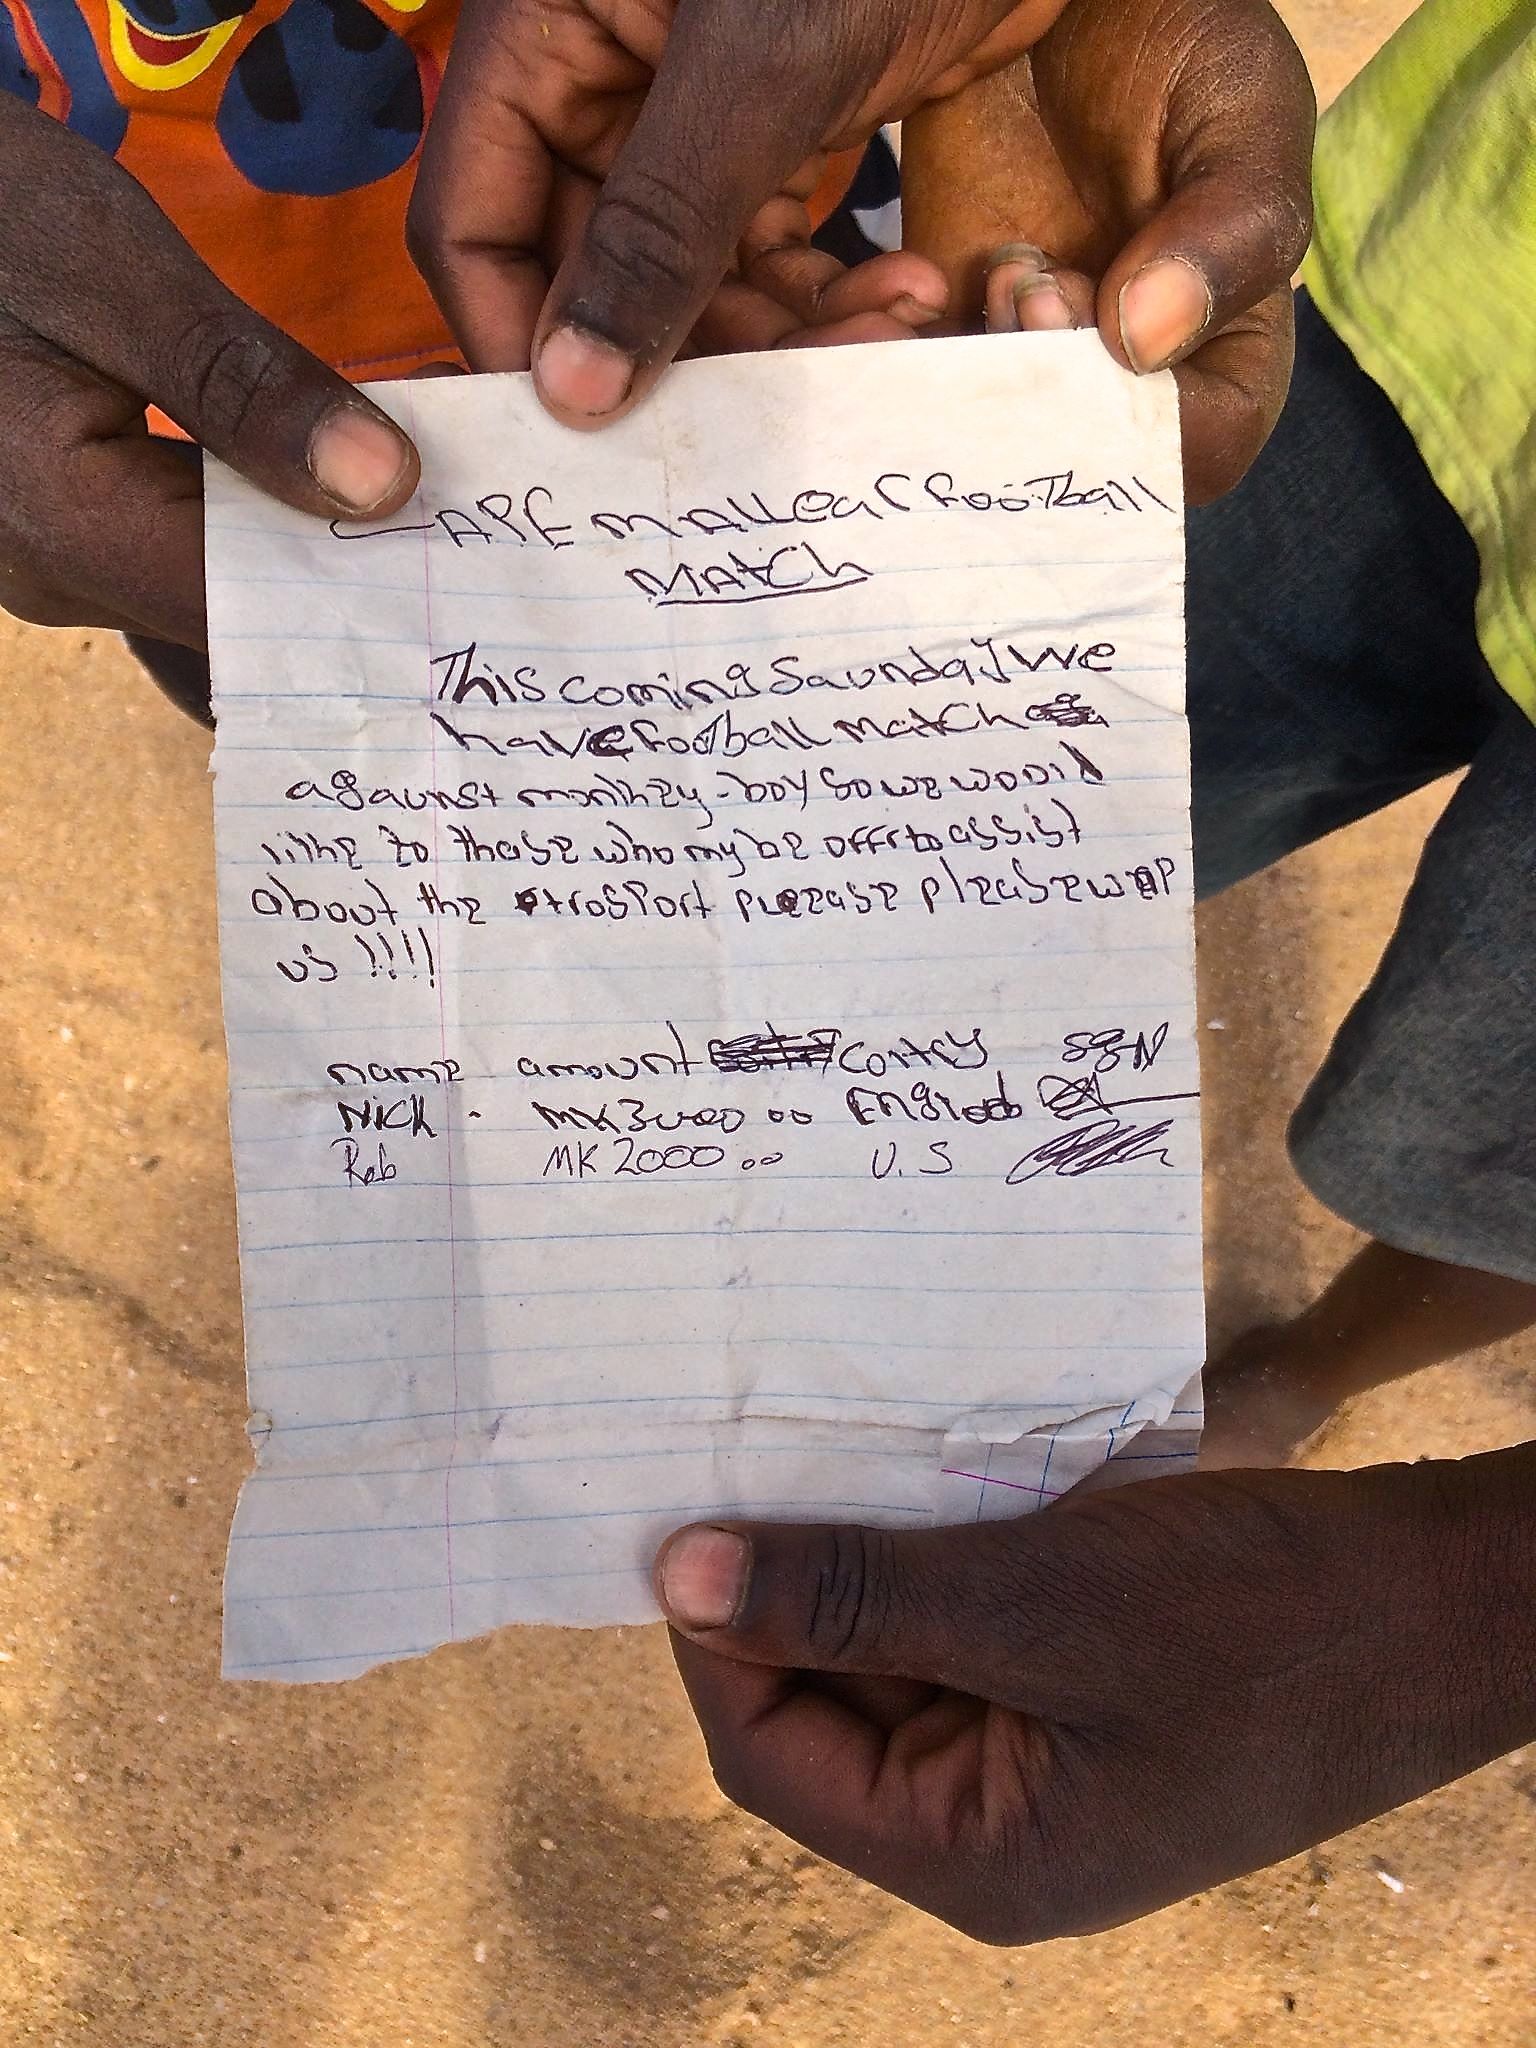 CAPE MALLEar FooTball
MAtCh
This coming Saunday we
have FooTball MatCh
agaunst monhey-boy So we woould
lihe to those who my be offr to assist
about the trosport please please weap
us !!!!
name amount Contry sgN
NICK - MK3000 00 England
Rob MK 2000 00 U.S